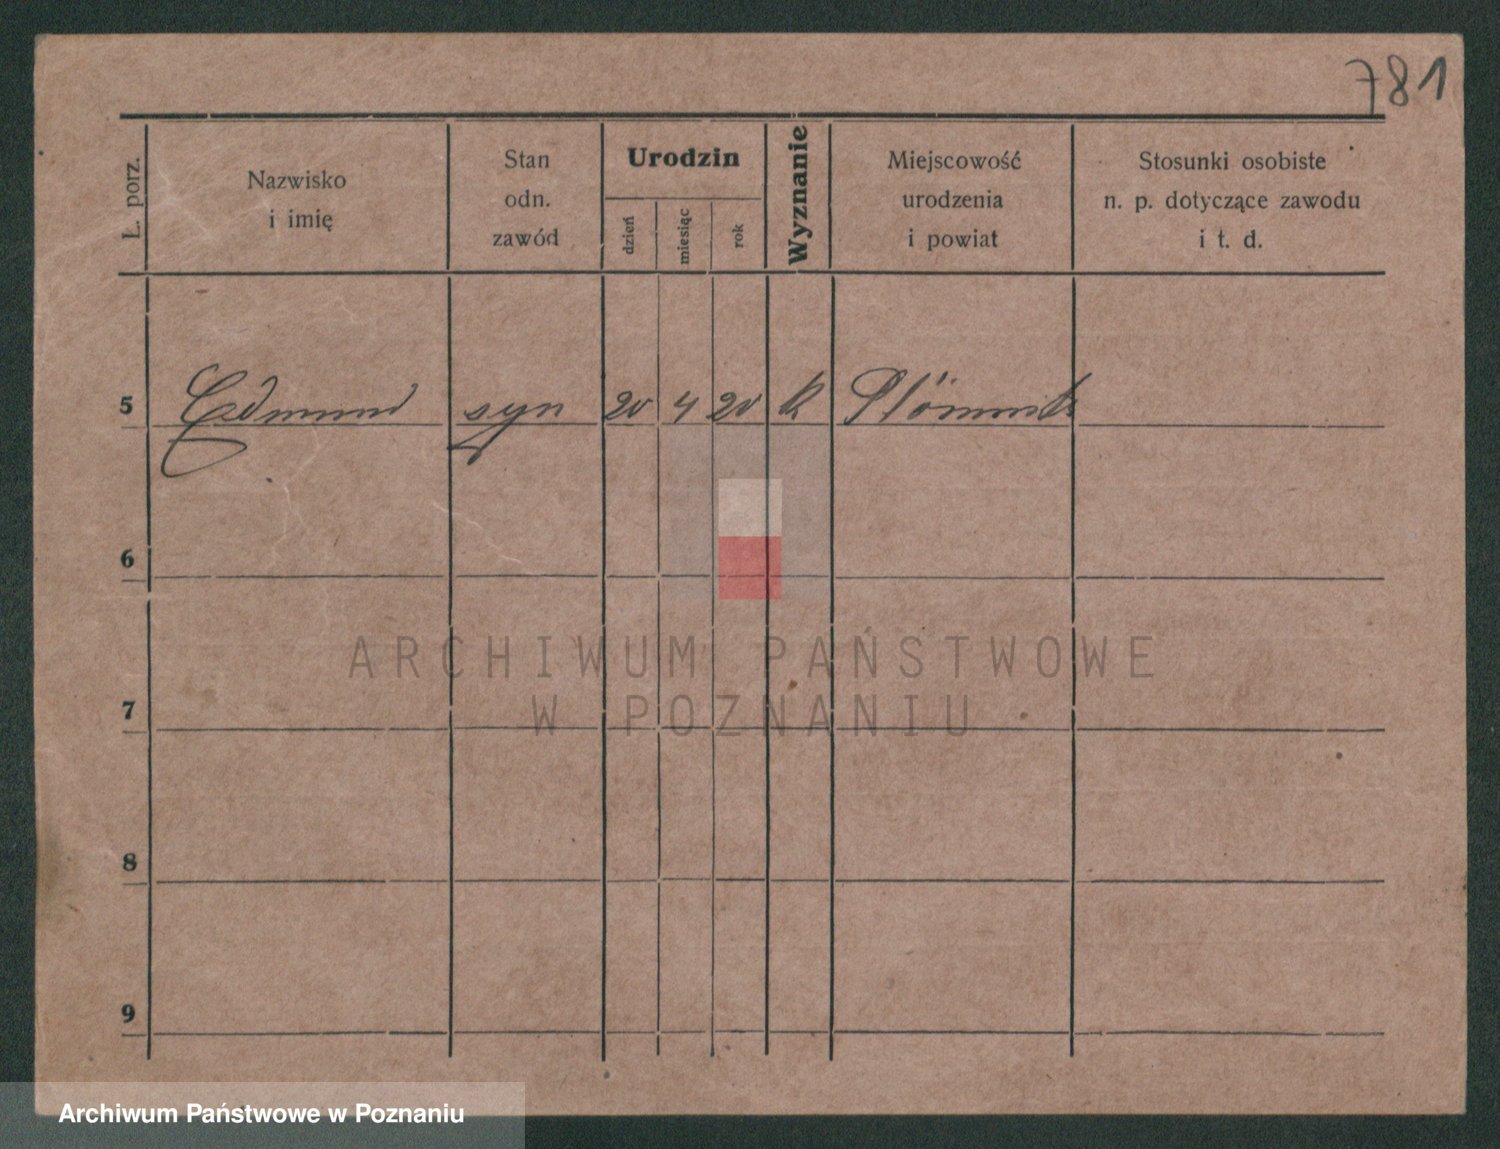 781
L. porz.
Nazwisko
i imię
Stan
odn.
zawód
Urodzin
dzień
miesiąc
rok
Wyznanie
Miejscowość
urodzenia
i powiat
Stosunki osobiste
n. p. dotyczące zawodu
i t. d.
5 Edmund syn 20 4 20 k
6
7
8
9
ARCHIWUM PAŃSTWOWE
W POZNANIU
Archiwum Państwowe w Poznaniu